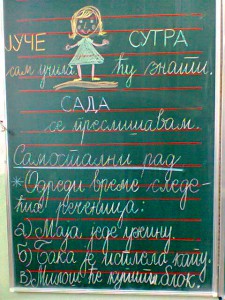 ЈУЧЕ СУТРА
сам учила ћу знати.
САДА
се преслишавам.
Самостални рад
*Одреди време следе-
ћих реченица:
а) Маја једе ужину.
б) Бака је исплела капу.
в) Милош ће купити блок.